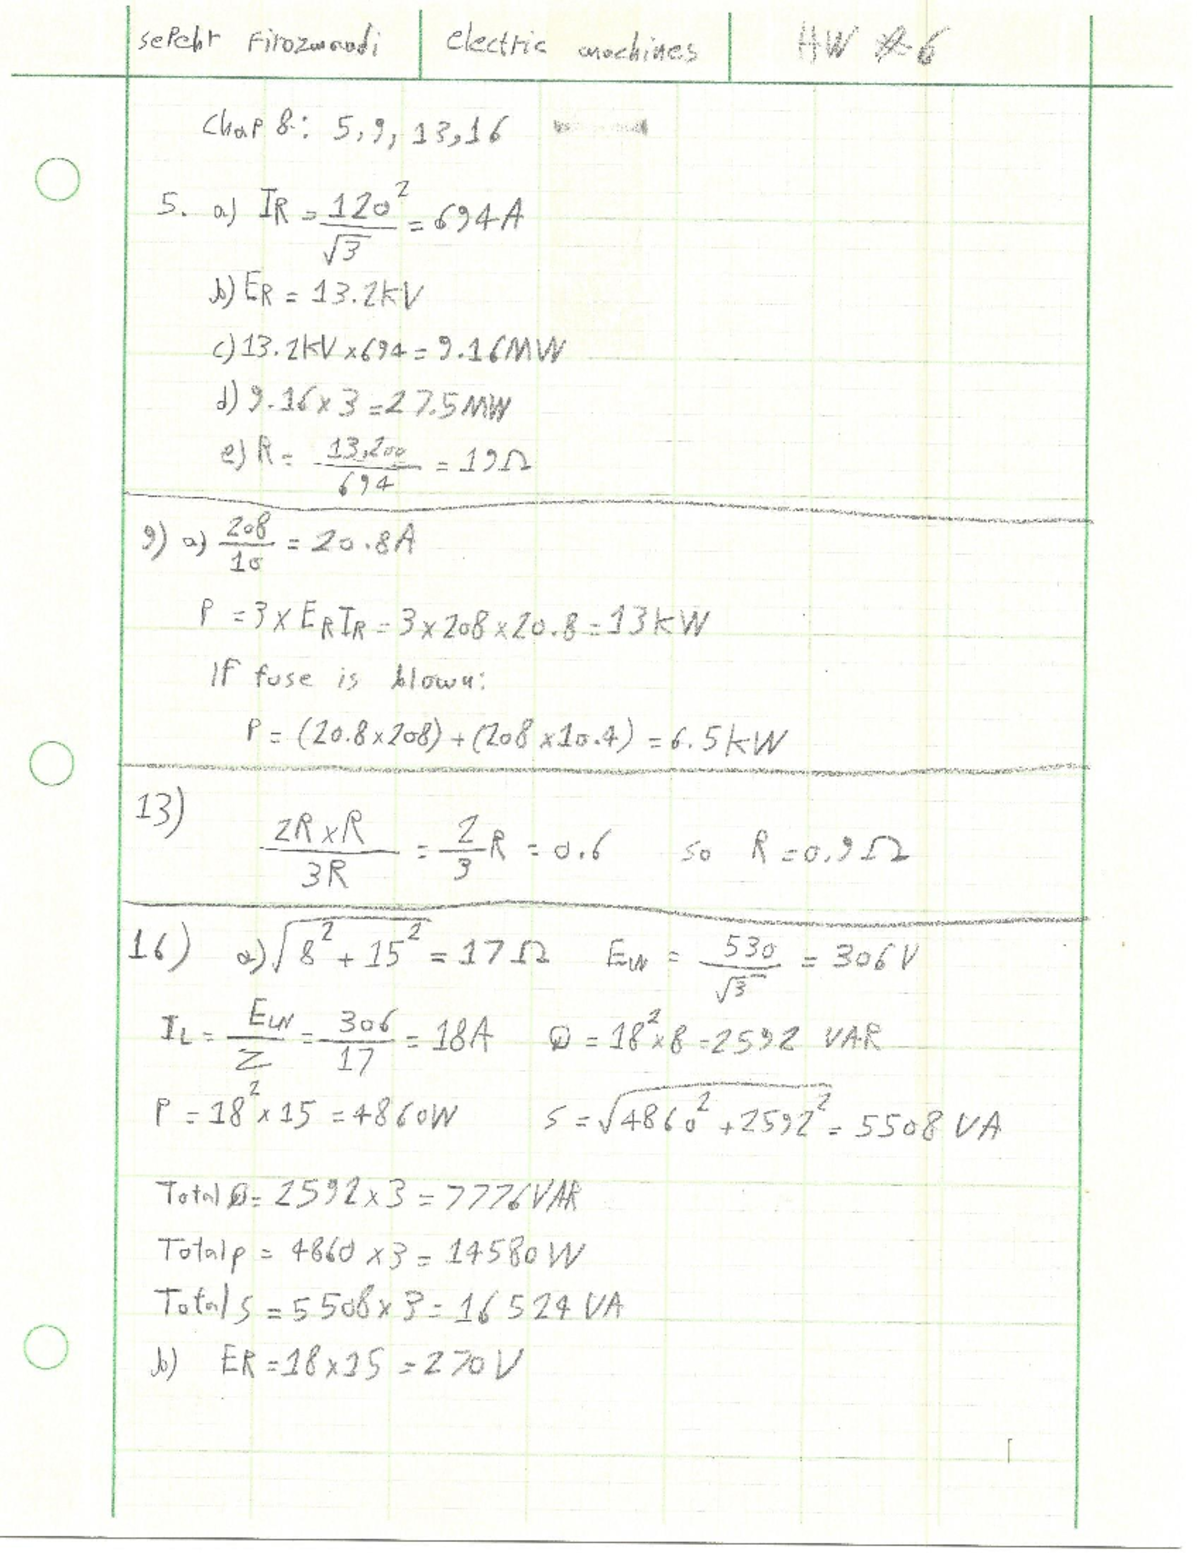 sepehr Firozmandi electric machines HW # 6
Chap 8: 5, 9, 13, 16
5. a) IR = 120²/√3 = 694A
b) ER = 13.2KV
c) 13.2KV x 694 = 9.16MW
d) 9.16 x 3 = 27.5MW
e) R = 13,200/694 = 19Ω
9) a) 208/10 = 20.8A
P = 3 x ER IR = 3 x 208 x 20.8 = 13KW
If fuse is blown:
P = (20.8 x 208) + (208 x 10.4) = 6.5KW
13) 2R x R/3R = 2/3 R = 0.6 so R = 0.9Ω
16) a) √8² + 15² = 17Ω ELN = 530/√3 = 306V
IL = ELN/Z = 306/17 = 18A Q = 18² x 8 = 2592 VAR
P = 18² x 15 = 4860W S = √4860² + 2592² = 5508 VA
Total Q = 2592 x 3 = 7776VAR
Total p = 4860 x 3 = 14580W
Total S = 5508 x 3 = 16524 VA
b) ER = 18 x 15 = 270V